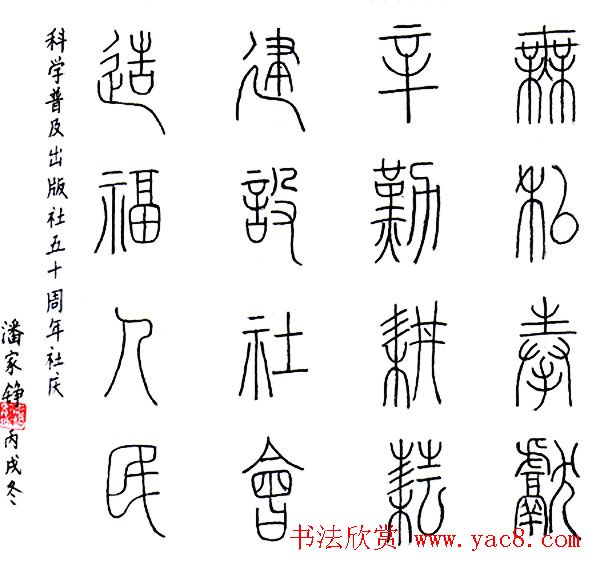 無私奉獻
辛勤耕耘
建設社會
造福人民
科学普及出版社五十周年社庆
潘家铮
丙戌冬
书法欣赏 www.yac8.com